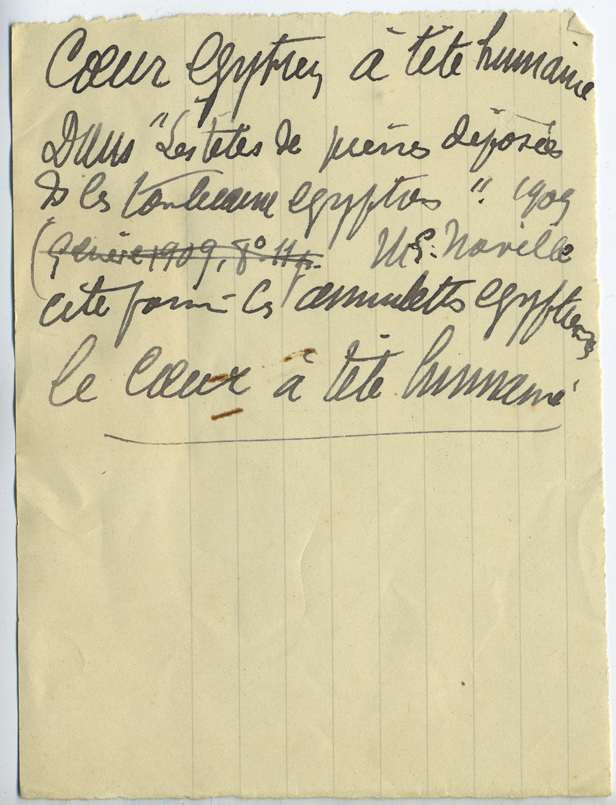 Cœur Egyptien à tête humaine
Dans "Les têtes de pierres déposées
ds les tombeaux egyptiens". 1909
(Genève 1909, 8° 11 p. M. E. Naville
cite parmi les ammulettes egyptiennes
le Cœur à tête humaine